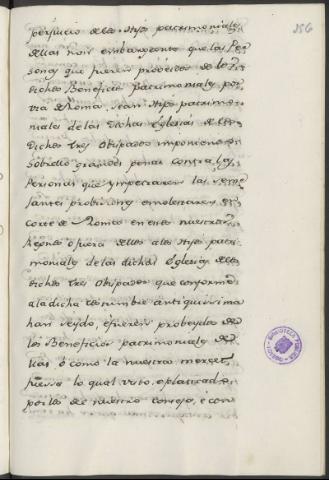 156
perjuicio de los Hijos patrimoniales
dellas nois embargante que las Per
sonas que fueren probeidas de los
dichos Beneficios patrimoniales por
via de Roma, sean Hijos patrimo
niales de las dichas Iglesias de los
dichos tres Obispados imponiendo
sobrello grandes penas contra las
Personas que ympetraren las seme
jantes probisiones en
corte de Roma en estos nuestros
Reynos o fuera dellos a los Hijos patri
moniales de las dichas Iglesias de los
dichos tres Obispados que conforme
a la dicha costumbre antiquissima
han seydo, e fueren probeydos de
los Beneficios patrimoniales de
llas ó como la nuestra merced
fuesse lo qual visto, e platicado
por los de nuestro consejo, e con